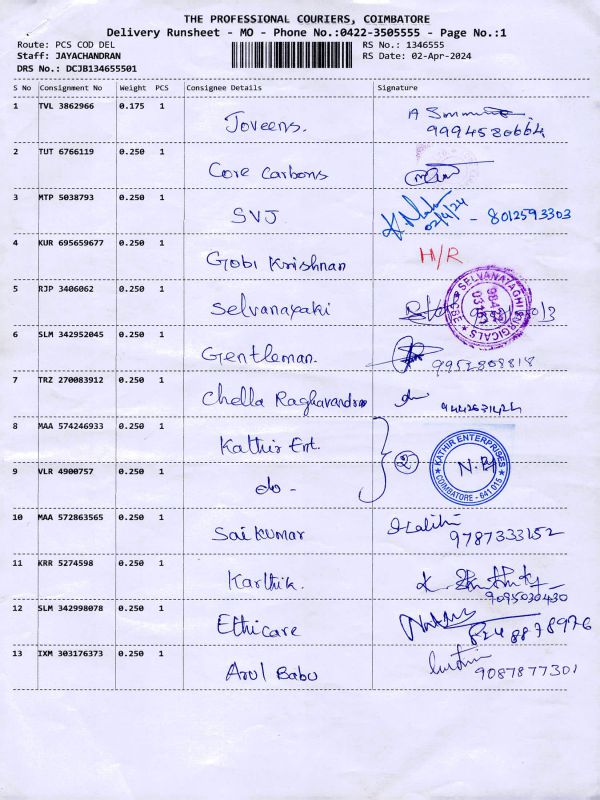 THE PROFESSIONAL COURIERS, COIMBATORE
Delivery Runsheet - MO - Phone No.:0422-3505555 - Page No.:1
Route: PCS COD DEL
RS No.: 1346555
Staff: JAYACHANDRAN
RS Date: 02-Apr-2024
DRS No.: DCJB134655501
S No Consignment No Weight PCS Consignee Details Signature
1 TVL 3862966 0.175 1 Joveens. A
9994520664
2 TUT 6766119 0.250 1 Core Carbons
3 MTP 5038793 0.250 1 SVJ 02/4/24 - 8012593303
4 KUR 695659677 0.250 1 Gobi Krishnan H/R
5 RJP 3406062 0.250 1 Selvanayaki
SELVANAYAGHI SURGICALS
6 SLM 342952045 0.250 1 Gentleman. 9952808818
7 TRZ 270083912 0.250 1 Chella Raghavandra
8 MAA 574246933 0.250 1 Kathir Ent. 2
KATHIR ENTERPRISES
COIMBATORE - 641 015
9 VLR 4900757 0.250 1 do -
10 MAA 572863565 0.250 1 Sai Kumar
9787333152
11 KRR 5274598 0.250 1 Karthik. K.
9095030430
12 SLM 342998078 0.250 1 Ethicare
13 IXM 303176373 0.250 1 Arul Babu 9087877301